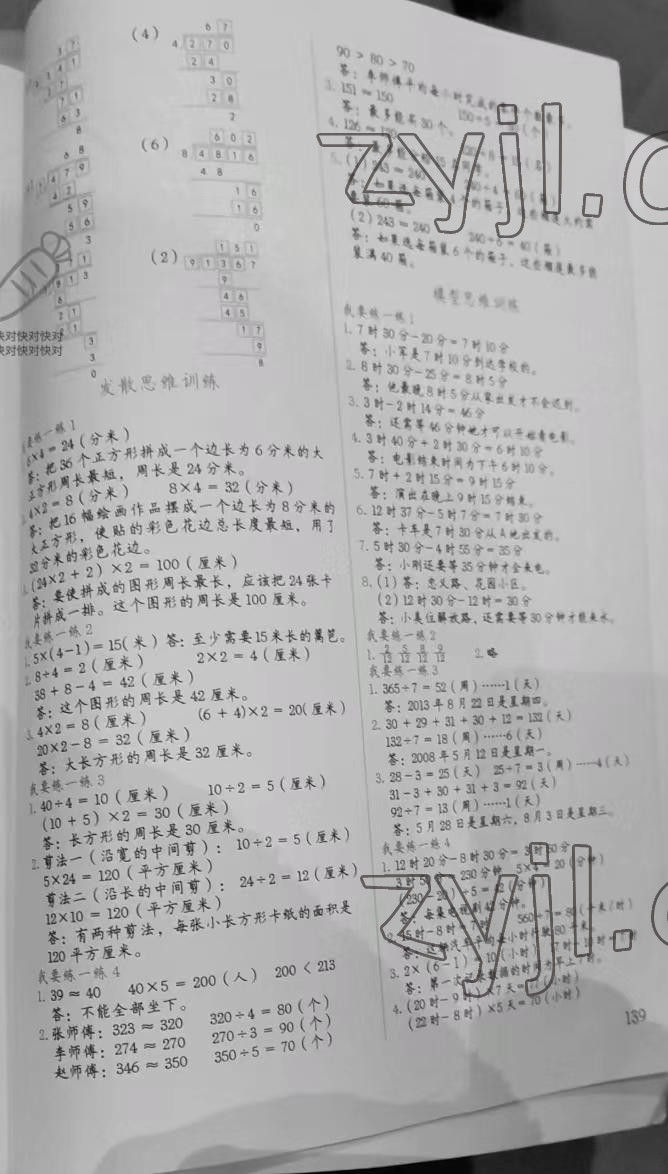 (4)
6 7
4 2 7 0
2 4
3 0
2 8
2
6 8
7 4 7 9
4 2
5 9
5 6
3
(6)
6 0 2
8 4 8 1 6
4 8
1 6
1 6
0
(2)
1 5 1
9 1 3 6 7
9
4 6
4 5
1 7
9
8
快对快对快对
快对快对快对
发散思维训练
我要练一练 1
6×4=24(分米)
答:把36个正方形拼成一个边长为6分米的大
正方形周长最短,周长是24分米。
4×2=8(分米) 8×4=32(分米)
答:把16幅绘画作品摆成一个边长为8分米的
大正方形,使贴的彩色花边总长度最短,用了
32分米的彩色花边。
(24×2+2)×2=100(厘米)
答:要使拼成的图形周长最长,应该把24张卡
片拼成一排。这个图形的周长是100厘米。
我要练一练 2
1.5×(4-1)=15(米) 答:至少需要15米长的篱笆。
2.8÷4=2(厘米) 2×2=4(厘米)
38+8-4=42(厘米)
答:这个图形的周长是42厘米。
3.4×2=8(厘米) (6+4)×2=20(厘米)
20×2-8=32(厘米)
答:大长方形的周长是32厘米。
我要练一练 3
1.40÷4=10(厘米) 10÷2=5(厘米)
(10+5)×2=30(厘米)
答:长方形的周长是30厘米。
2.剪法一(沿宽的中间剪): 10÷2=5(厘米)
5×24=120(平方厘米)
剪法二(沿长的中间剪): 24÷2=12(厘米)
12×10=120(平方厘米)
答:有两种剪法,每张小长方形卡纸的面积是
120平方厘米。
我要练一练 4
1.39≈40 40×5=200(人) 200<213
答:不能全部坐下。
2.张师傅:323≈320 320÷4=80(个)
李师傅:274≈270 270÷3=90(个)
赵师傅:346≈350 350÷5=70(个)
90>80>70
答:李师傅平均每小时完成的
3.151≈150 150÷5
答:最多能买30个。
4.126≈120
(2)243≈240 240÷6=40(箱)
答:如果选每箱装6个的箱子,这些帽最多能
装满40箱。
模型思维训练
我要练一练 1
1.7时30分-20分=7时10分
答:小军是7时10分到达学校的。
2.8时30分-25分=8时5分
答:他最晚8时5分从家出发才不会迟到。
3.3时-2时14分=46分
答:还需等46分钟他才可以开始看电影。
4.3时40分+2时30分=6时10分
答:电影结束时间为下午6时10分。
5.7时+2时15分=9时15分
答:演出在晚上9时15分结束。
6.12时37分-5时7分=7时30分
答:卡车是7时30分从A地出发的。
7.5时30分-4时55分=35分
答:小刚还要等35分钟才会来电。
8.(1)答:忠义路、花园小区。
(2)12时30分-12时=30分
答:小美住解放路,还需要等30分钟才能来水。
我要练一练 2
1. 2/12 5/12 8/12 9/12 2.略
我要练一练 3
1.365÷7=52(周)……1(天)
答:2013年8月22日是星期四。
2.30+29+31+30+12=132(天)
132÷7=18(周)……6(天)
答:2008年5月12日是星期一。
3.28-3=25(天) 25÷7=3(周)……4(天)
31-3+30+31+3=92(天)
92÷7=13(周)……1(天)
答:5月28日是星期六,8月3日是星期三。
我要练一练 4
1.12时20分-8时30分=3时50分
3时50分=230分钟 5×4=20(分钟)
(230-20)÷5=42(分钟)
答:每集电视剧42分钟。
2.15时-8时=7时 560÷7=80(千米/时)
3.2×(6-1)=10(小时)
4.(20时-9时)×7天=77(小时)
(22时-8时)×5天=70(小时)
139
zyjl.c
zyjl.c